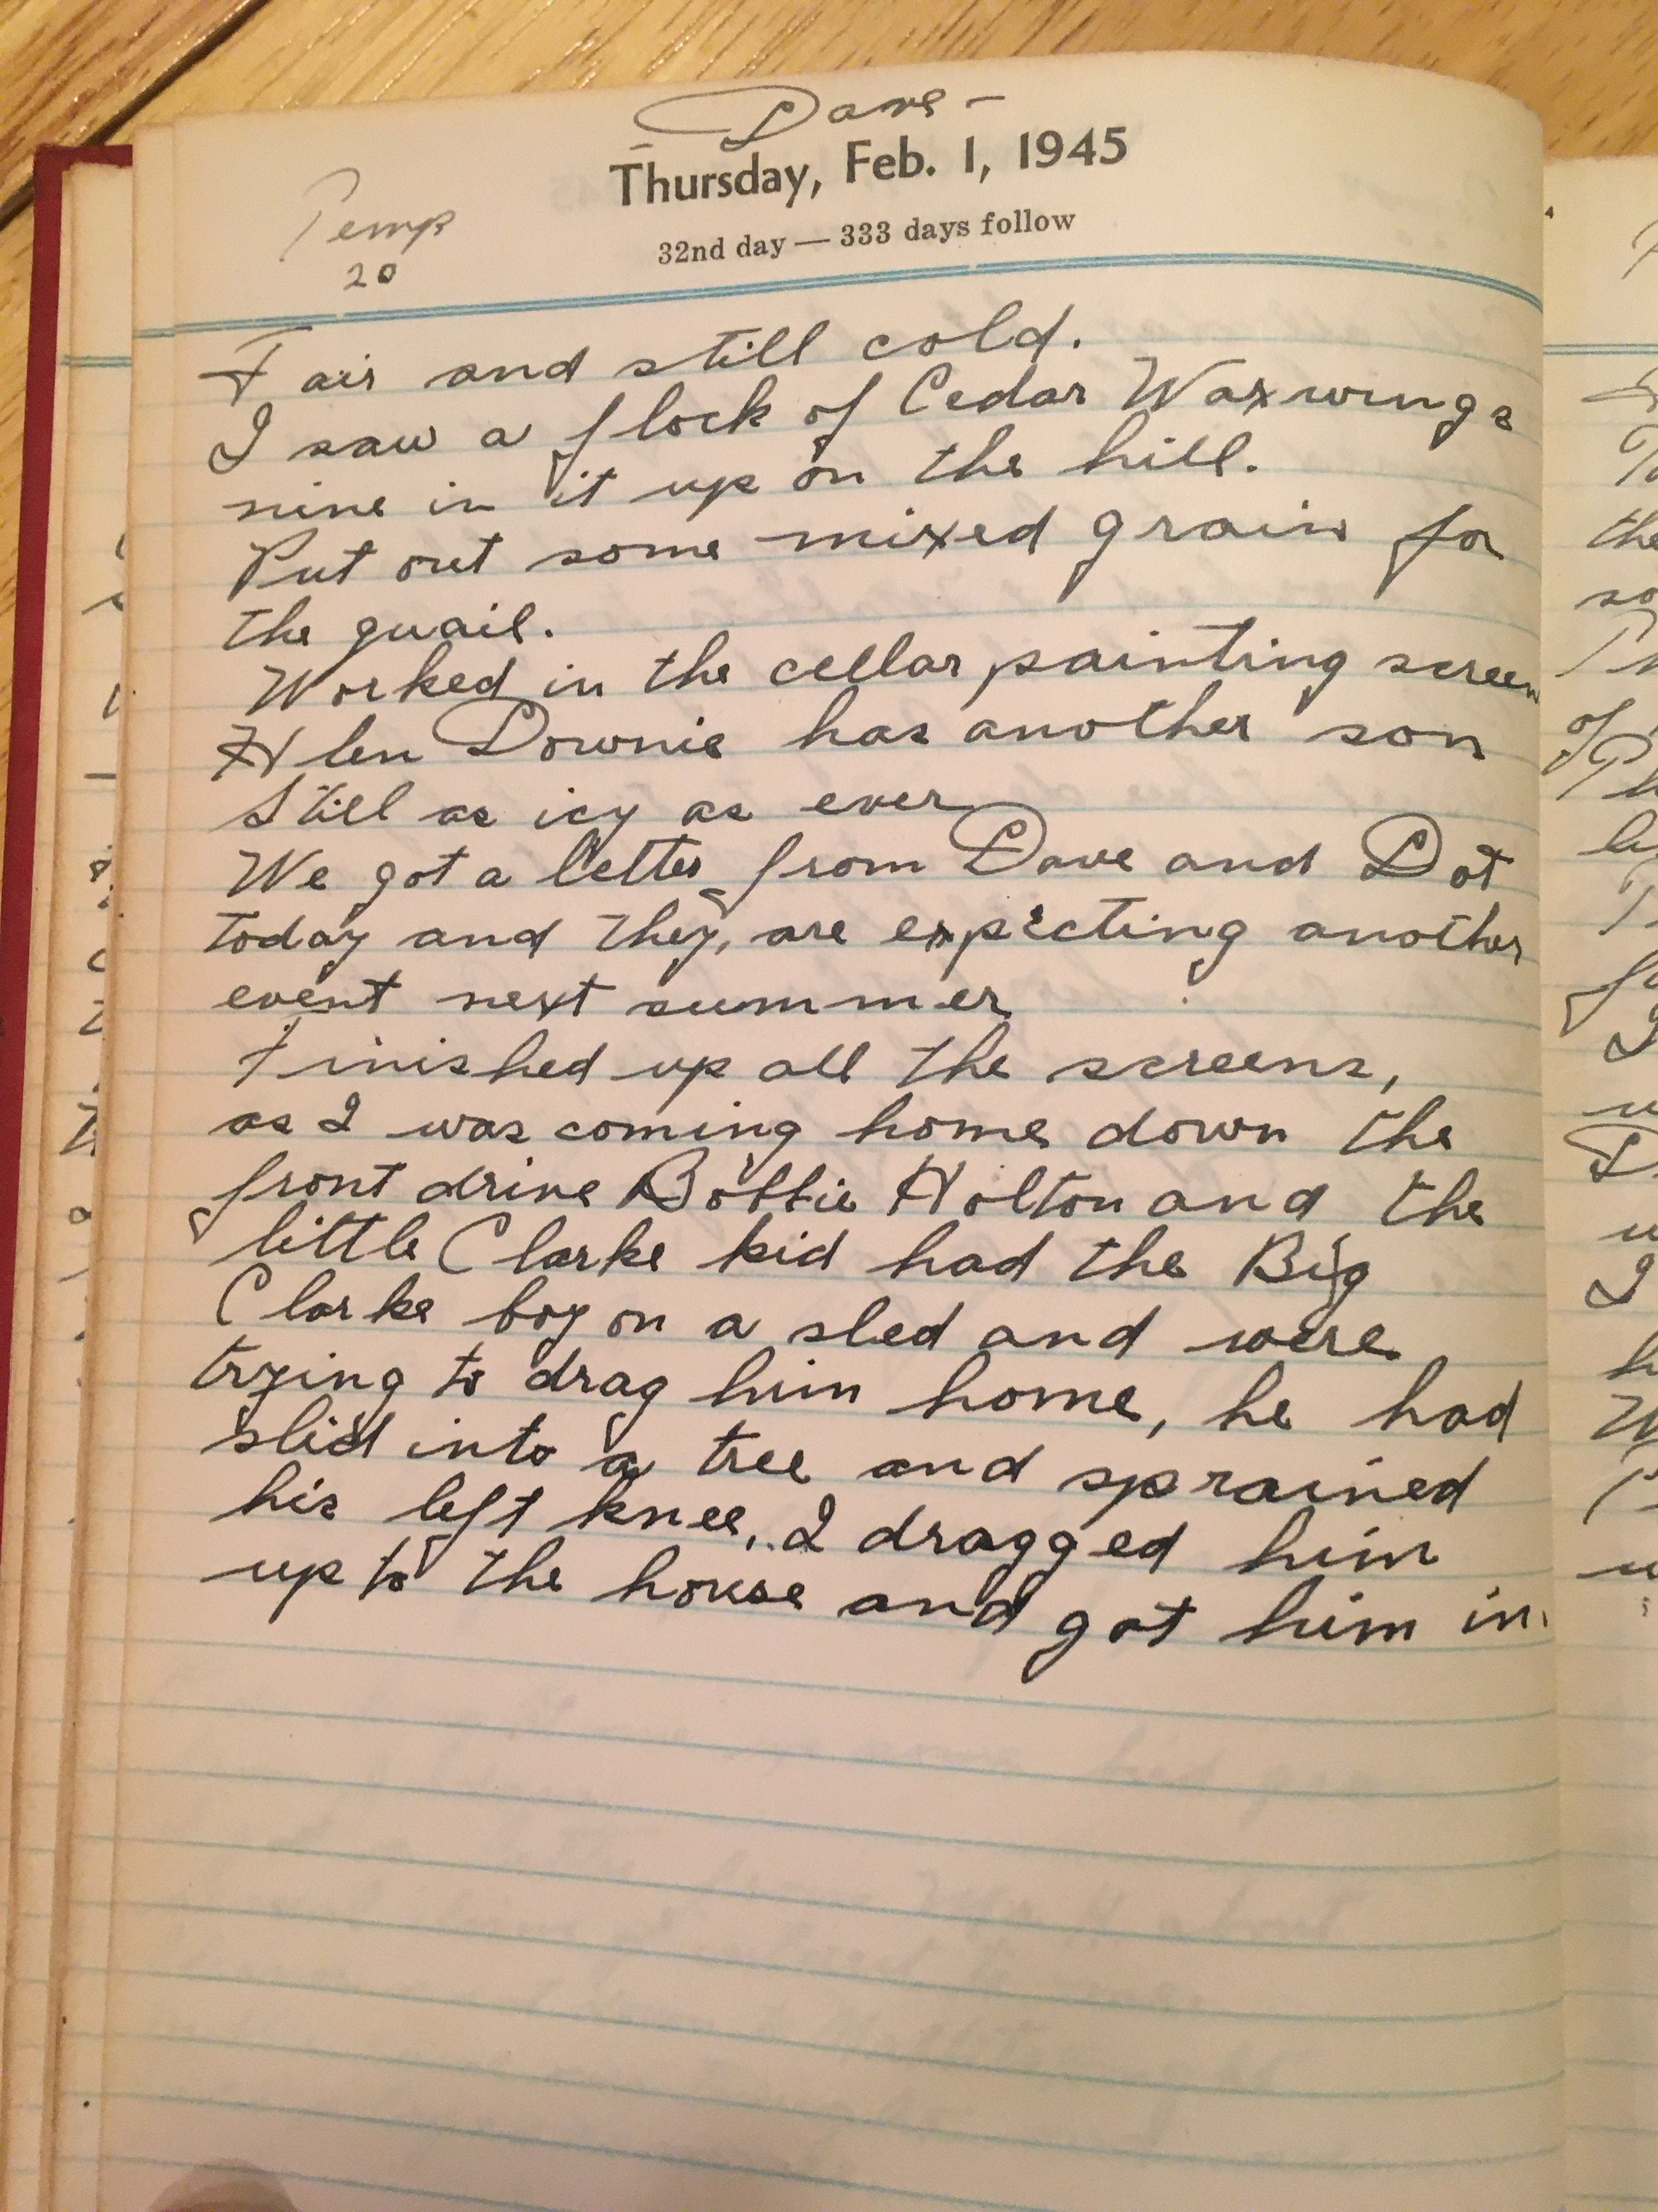 - Dave -
Thursday, Feb. 1, 1945
Temp
20
32nd day — 333 days follow
Fair and still cold.
I saw a flock of Cedar Waxwings
nine in it up on the hill.
Put out some mixed grain for
the quail.
Worked in the cellar painting screen
Hlen Downie has another son
Still as icy as ever
We got a letter from Dave and Dot
today and they, are expecting another
event next summer
Finished up all the screens,
as I was coming home down the
front drive Bobbie Holton and the
little Clarke kid had the Big
Clarke boy on a sled and were
trying to drag him home, he had
slid into a tree and sprained
his left knee. I dragged him
up to the house and got him in.